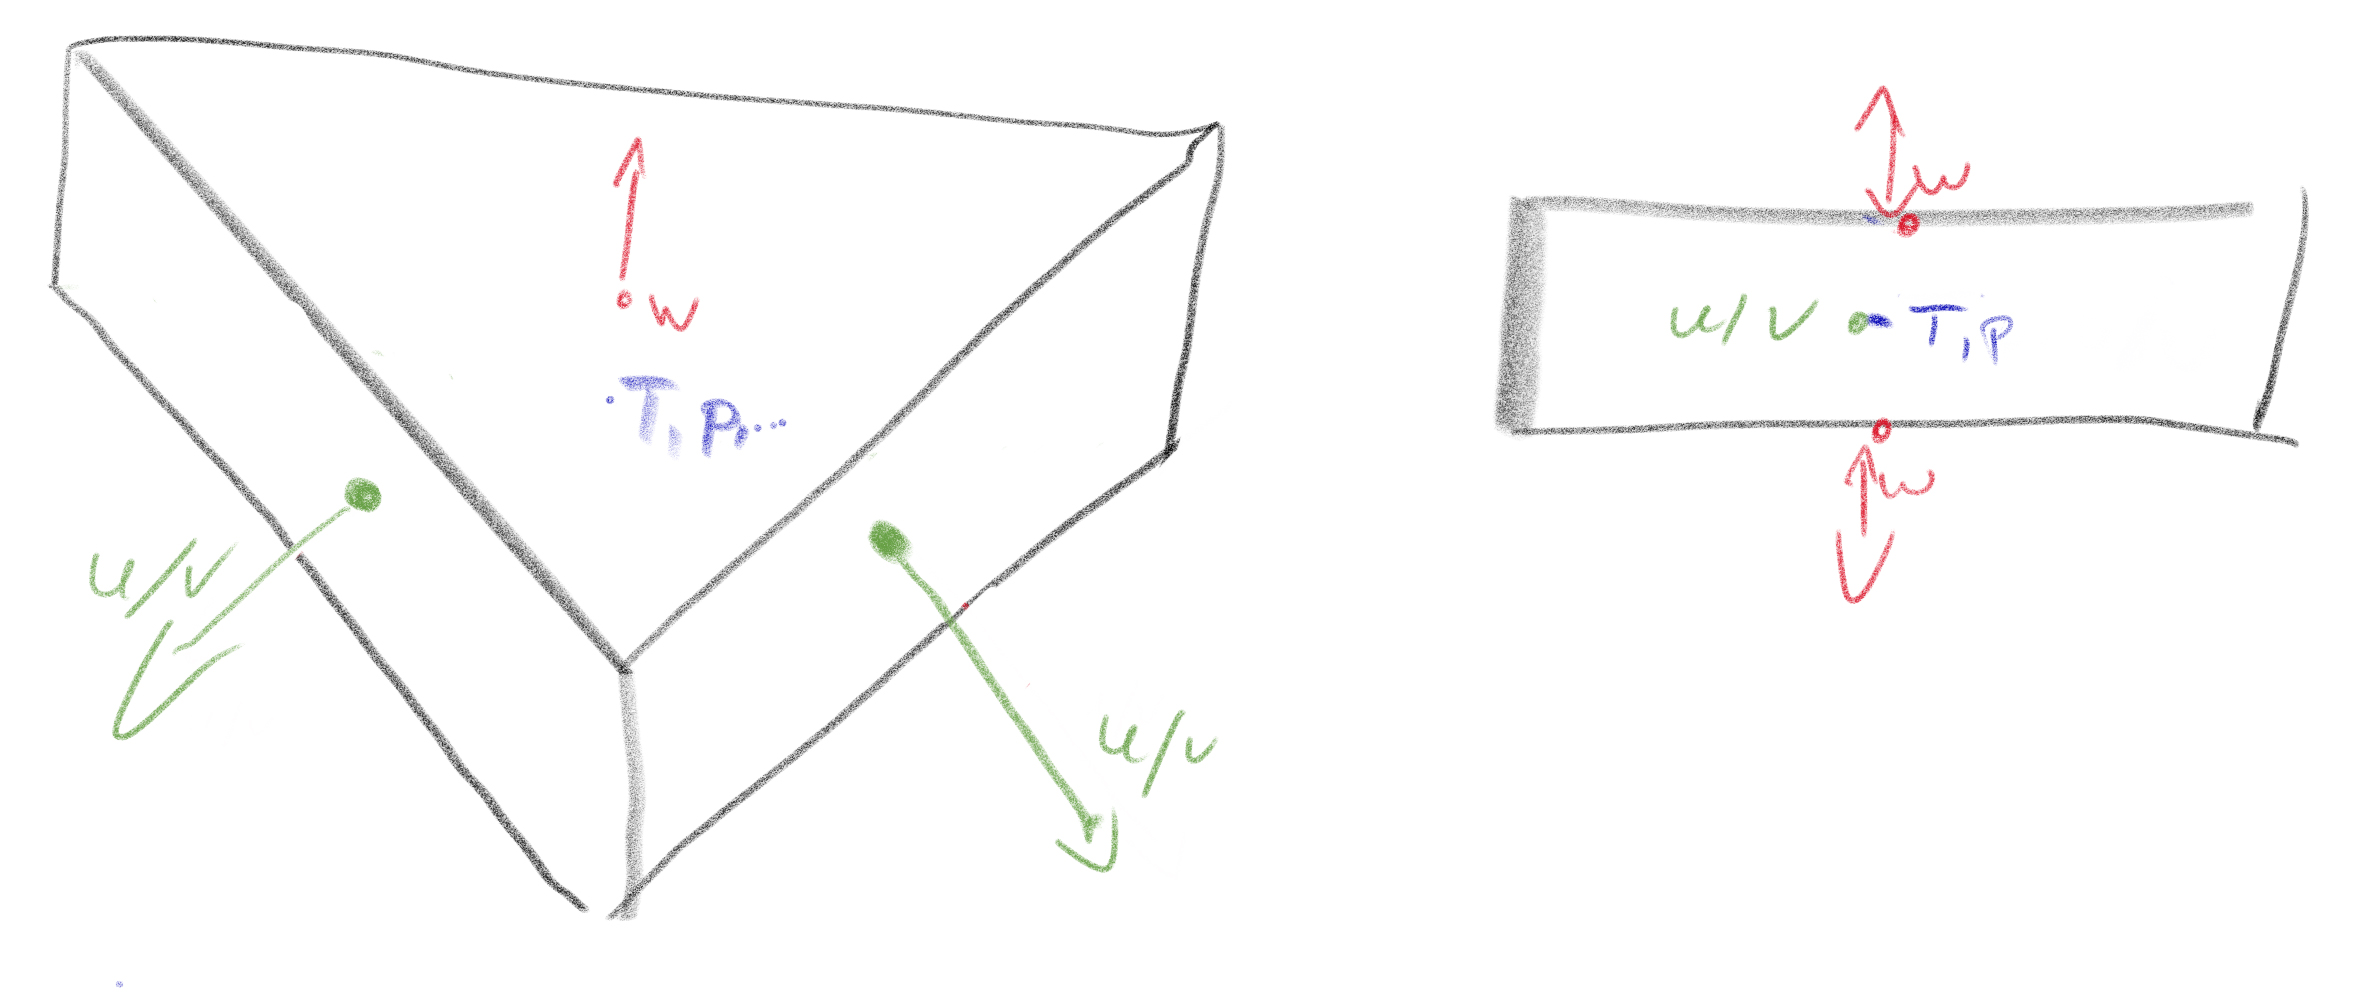 w
T, p, ...
u/v
u/v
w
u/v T, p
w